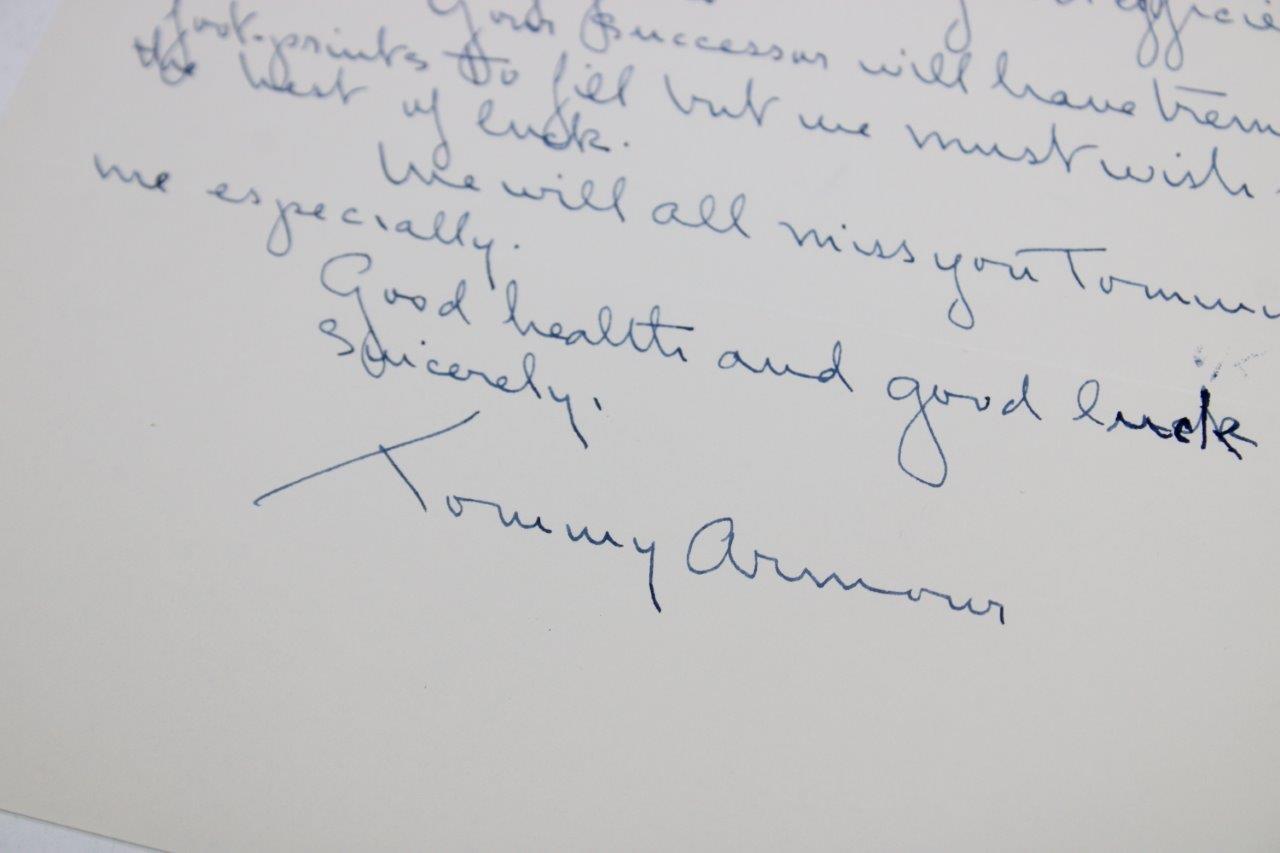 Your successor will have
foot-prints to fill but we must wish
the best of luck.
We will all miss you
me especially.
Good health and good luck
Sincerely,
Tommy Armour